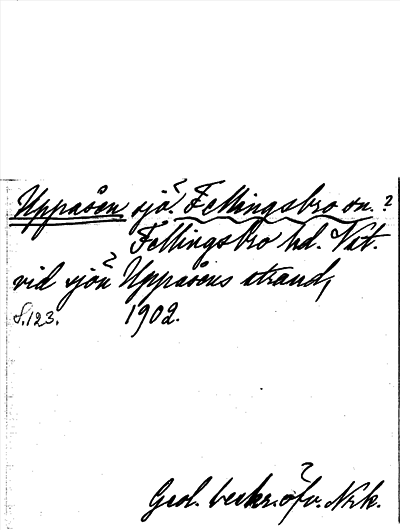 Uppåsen sjö? Fellingsbro sn.?
Fellingsbro hd. Vstm.
vid sjön? Uppåsens strand,
S.123. 1902.
Geol. beskr. öfv. Nrk.